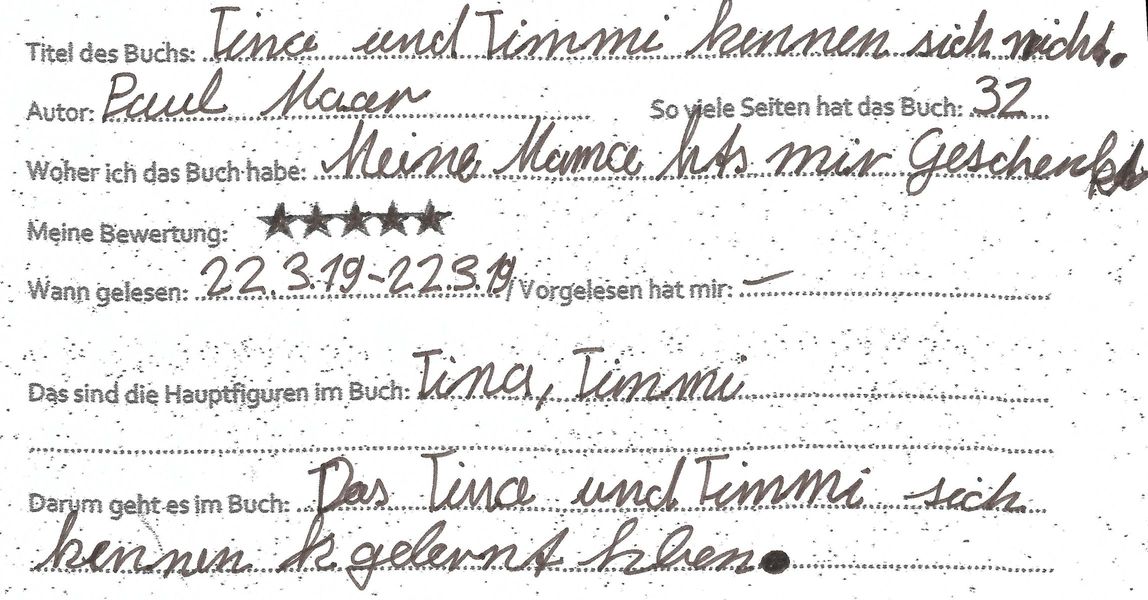 Titel des Buchs: Tina und Timmi kennen sich nicht.
Autor: Paul Maar So viele Seiten hat das Buch: 32
Woher ich das Buch habe: Meine Mama hts mir Geschenkt
Meine Bewertung: ★★★★★
Wann gelesen: 22.3.19-22.3.19 / Vorgelesen hat mir: –
Das sind die Hauptfiguren im Buch: Tina, Timmi
Darum geht es im Buch: Das Tina und Timmi sich
kennen gelernt hben.